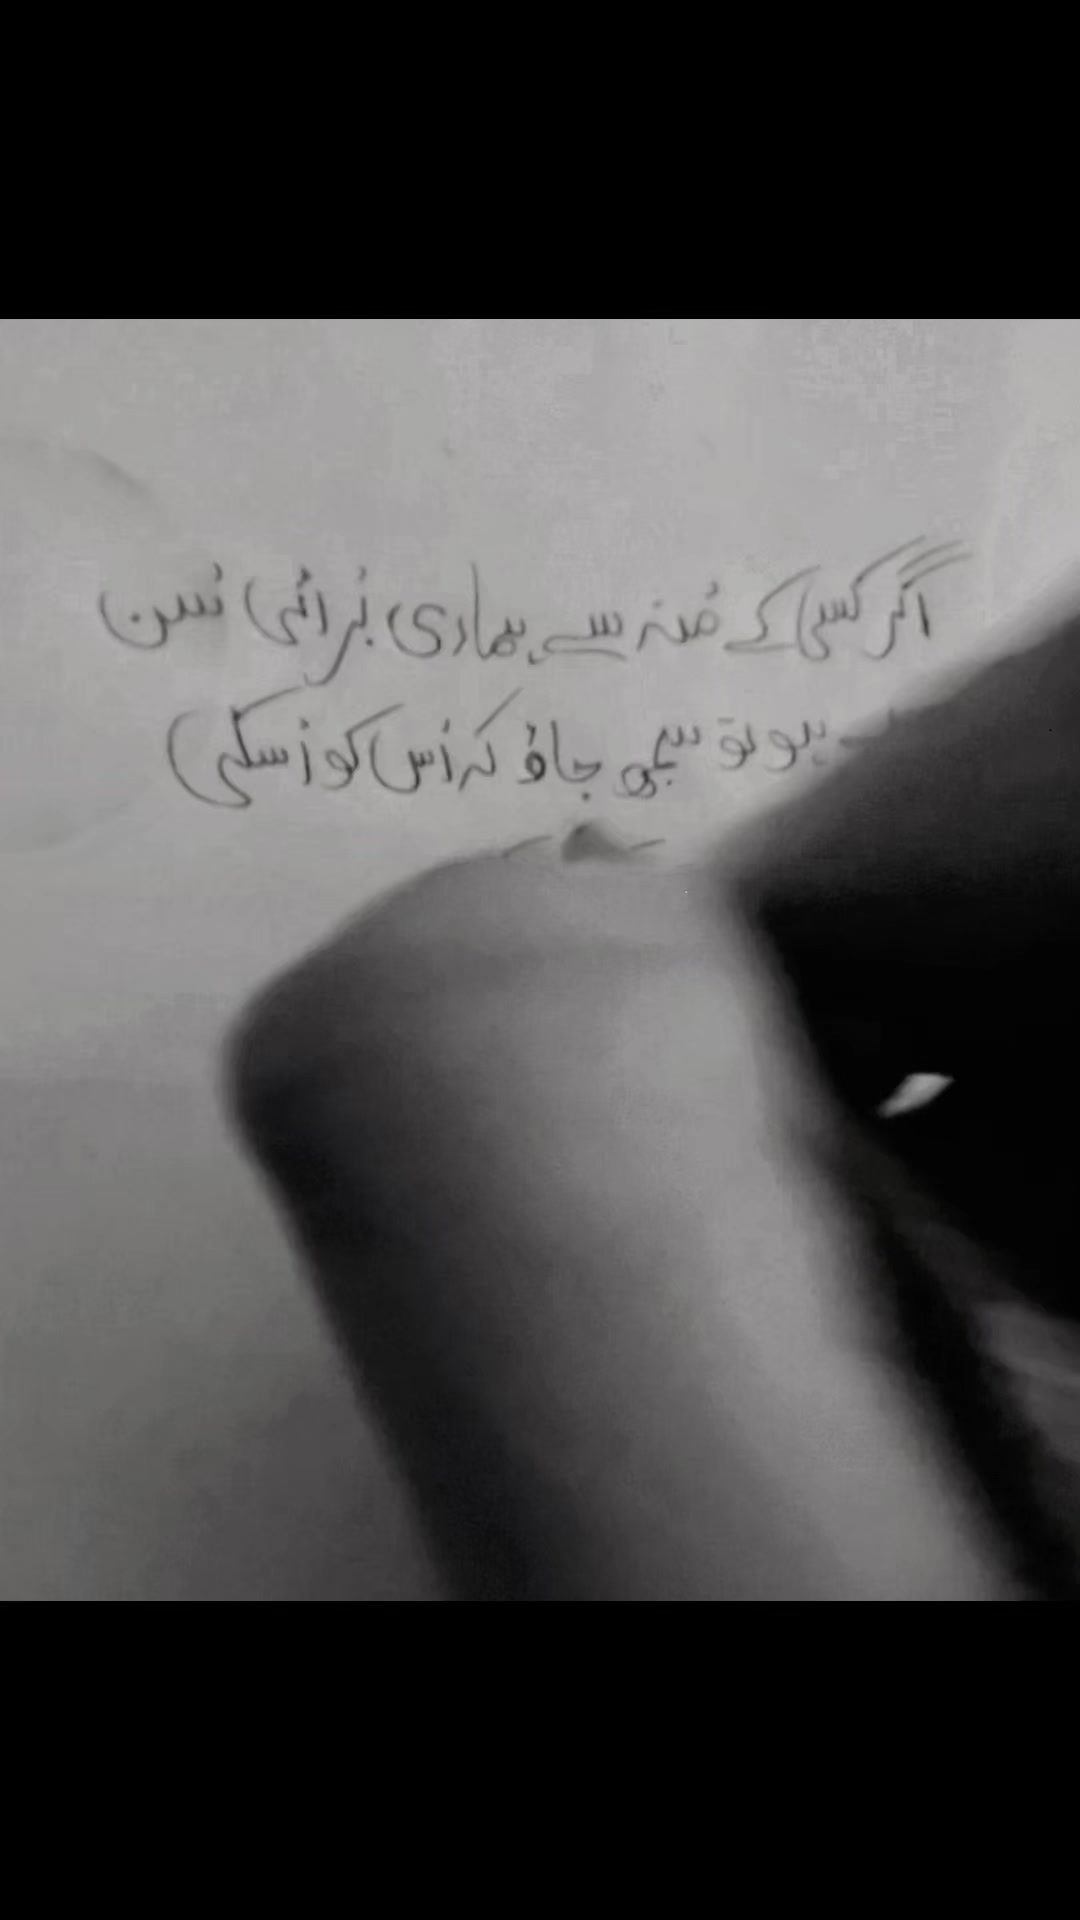 اگر کسی کے مُنہ سے ہماری بُرائی سُن
ہو تو سمجھ جاؤ کہ اُس کو اُسکی